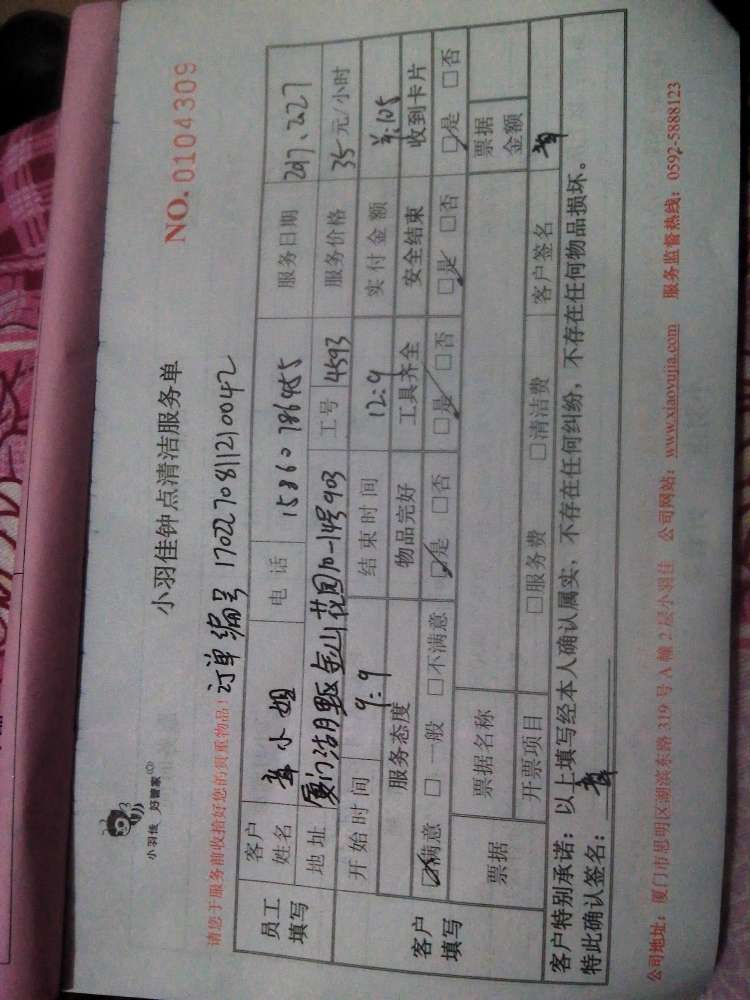 小羽佳 好管家
小羽佳钟点清洁服务单
NO. 0104309
请您于服务前收拾好您的贵重物品!
订单编号 17022708112110042
员工填写
客户姓名 小姐 电话 15860786455 服务日期 2017.2.27
地址 厦门湖里区金山花园10-14号903 工号 4593 服务价格 35元/小时
客户填写
开始时间 9:9 结束时间 12:9 实付金额 105
服务态度 物品完好 工具齐全 安全结束 收到卡片
☑满意 □一般 □不满意 ☑是 □否 ☑是 □否 ☑是 □否 ☑是 □否
票据 票据名称 票据金额
开票项目 □服务费 □清洁费 客户签名
客户特别承诺:以上填写经本人确认属实,不存在任何纠纷,不存在任何物品损坏。
特此确认签名:
公司地址:厦门市思明区湖滨东路 319 号 A 幢 2 层小羽佳 公司网站:www.xiaoyujia.com 服务监督热线:0592-5888123